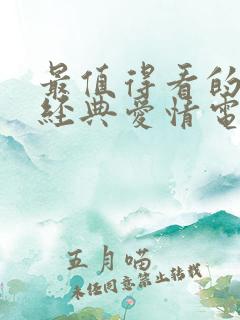 最值得看的
經典愛情電
五月喵
未经同意禁止转载